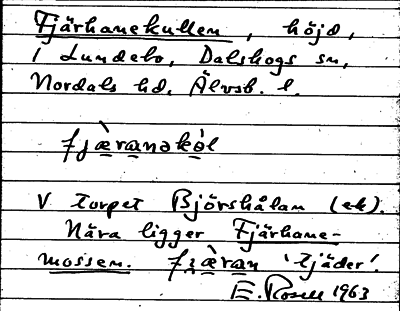 Fjärhanekullen, höjd,
i Lundebo, Dalskogs sn,
Nordals hd. Älvsb. l.
fjæ̀ranəkòl
V torpet Björshålan (ek).
Nära ligger Fjärhane-
mossen. fjæ̀ran 'tjäder'.
E. Rosell 1963